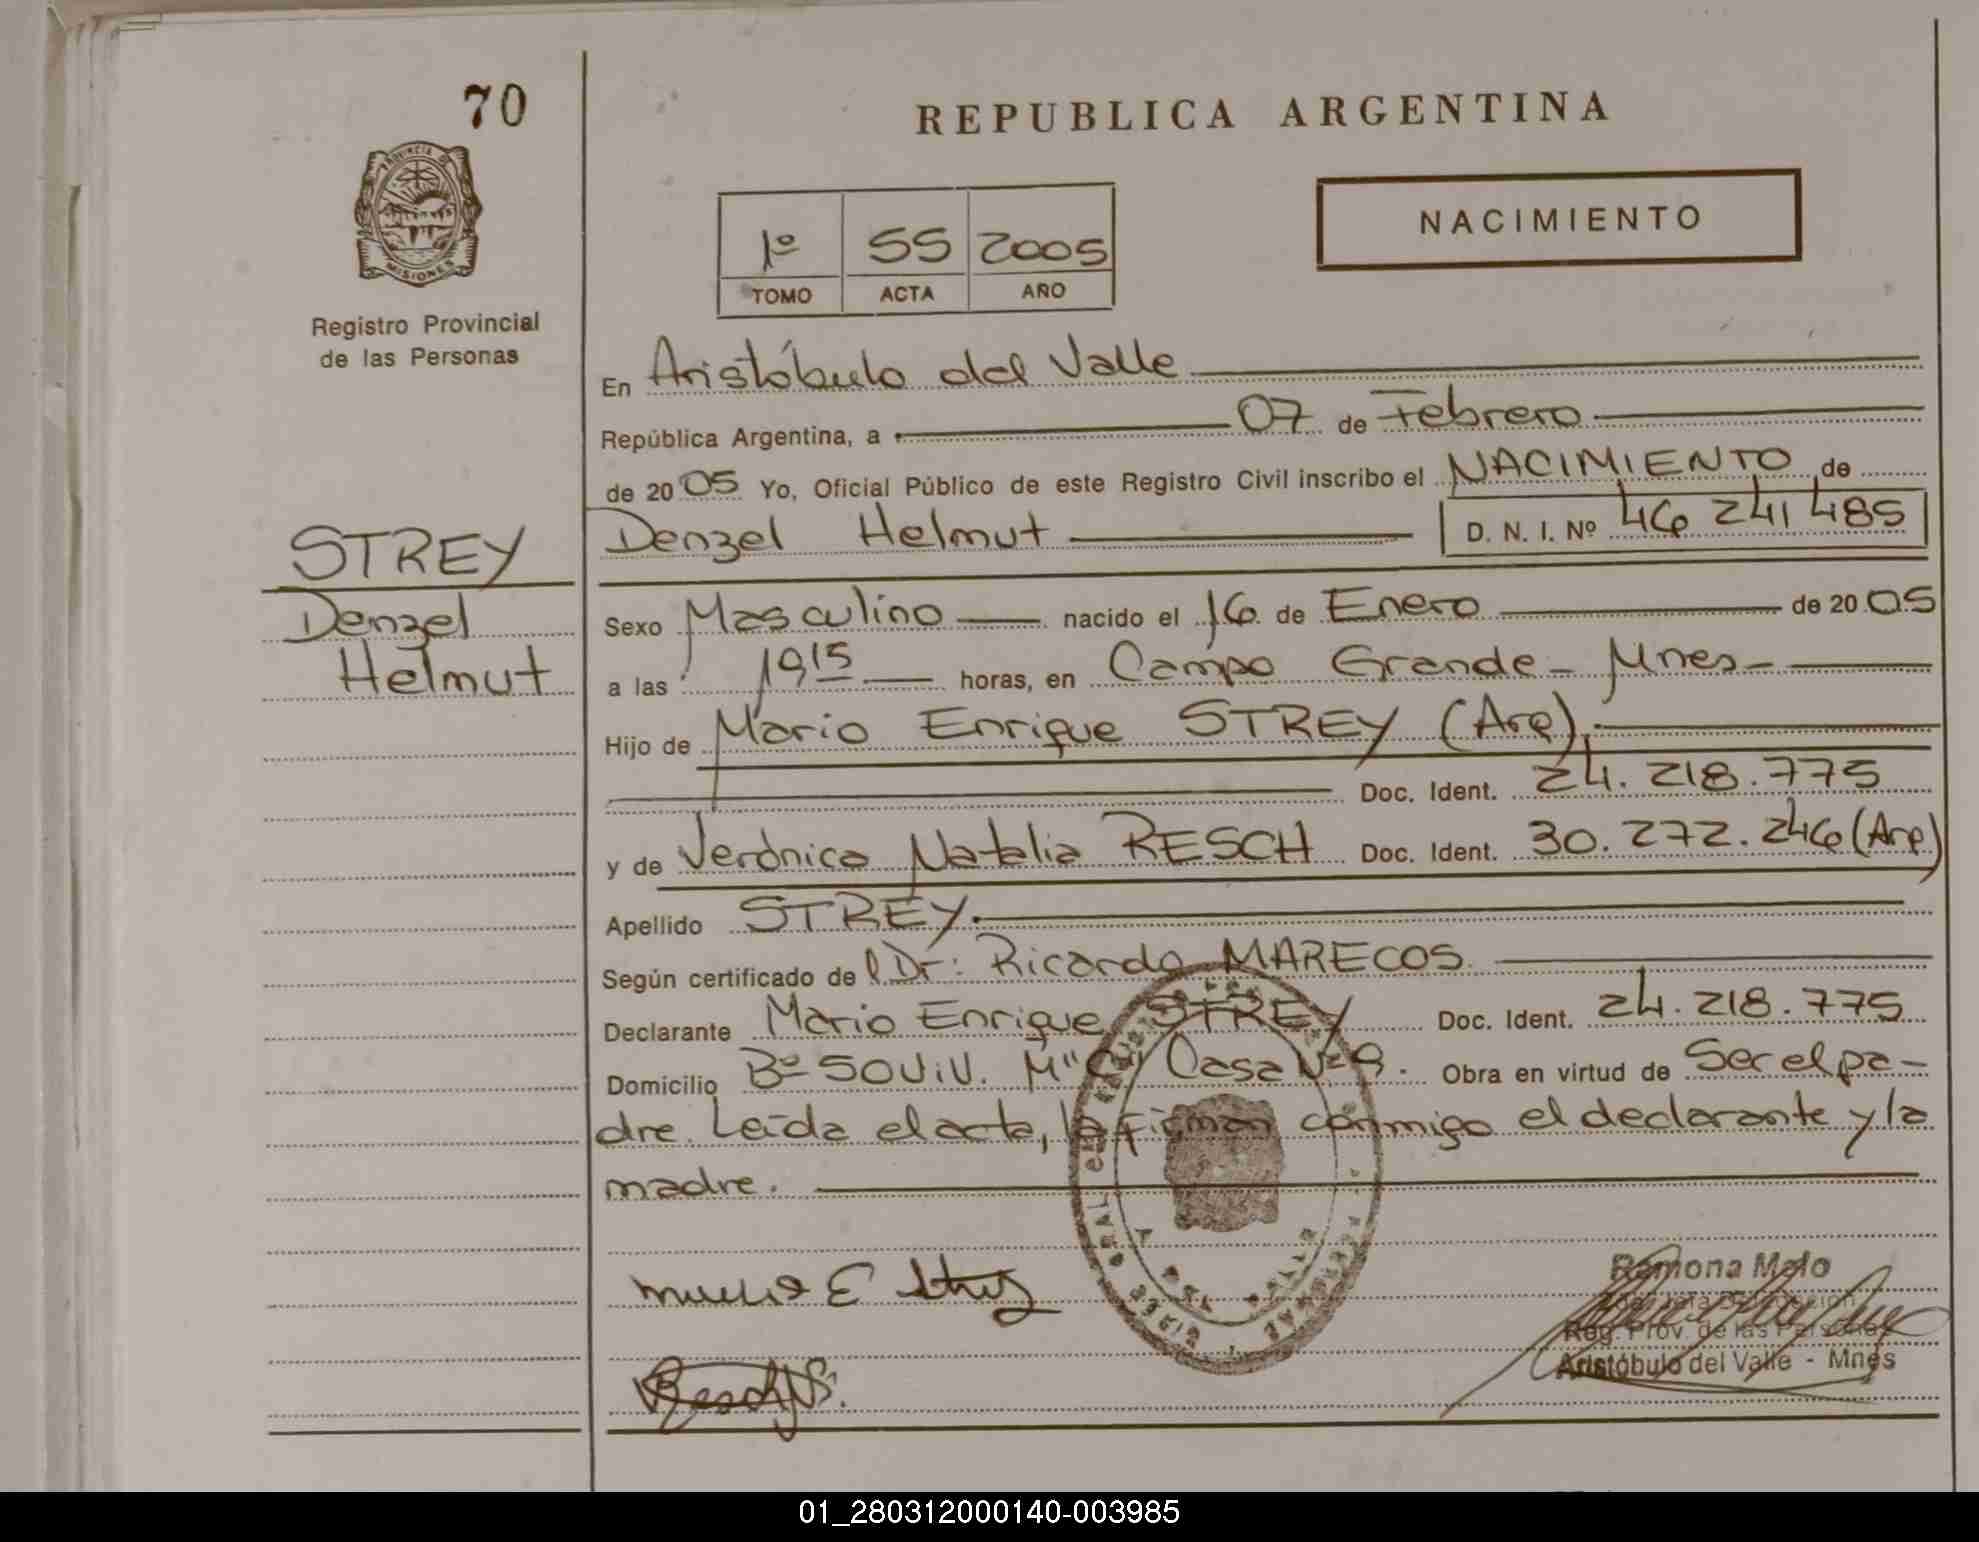 70
REPUBLICA ARGENTINA
PROVINCIA DE
MISIONES
NACIMIENTO
1º 55 2005
TOMO ACTA AÑO
Registro Provincial
de las Personas
En Aristóbulo del Valle
República Argentina, a 07 de Febrero
de 2005 Yo, Oficial Público de este Registro Civil inscribo el NACIMIENTO de
Denzel Helmut D. N. I. Nº 46 241 485
STREY
Denzel
Helmut
Sexo Masculino nacido el 16 de Enero de 2005
a las 19 15 horas, en Campo Grande - Mnes -
Hijo de Mario Enrique STREY (Arg)
Doc. Ident. 24.218.775
y de Verónica Natalia RESCH Doc. Ident. 30.272.246 (Arg)
Apellido STREY.
Según certificado de Dr: Ricardo MARECOS.
Declarante Mario Enrique STREY Doc. Ident. 24.218.775
Domicilio Bº 50 ViV. M"C" Casa Nº 9. Obra en virtud de Ser el pa-
dre. Leída el acta, la firman conmigo el declarante y la
madre.
Ramona Melo
Reg. Prov. de las Personas
Aristóbulo del Valle - Mnes
01_280312000140-003985